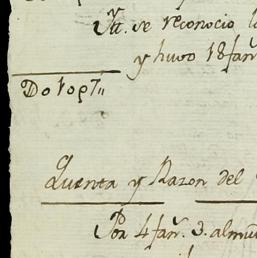 Ytt. se reconocio l
y huvo 18 fan
Quenta y Razon del
Por 4 fan. 3. almu